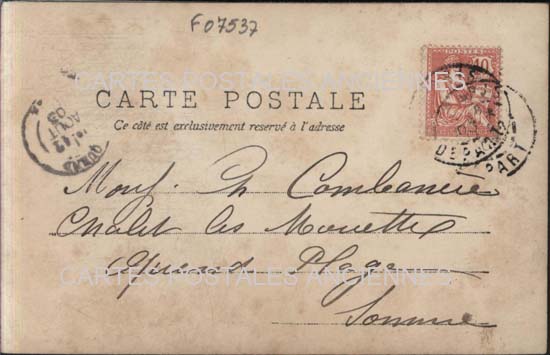 F07537
POSTES
10
CARTES POSTALES ANCIENNES
CARTE POSTALE
Ce côté est exclusivement reservé à l'adresse
DEPART
AOUT
03
Mons. Ch
Chalet les Mouettes
Plage
CARTES POSTALES ANCIENNES
Somme